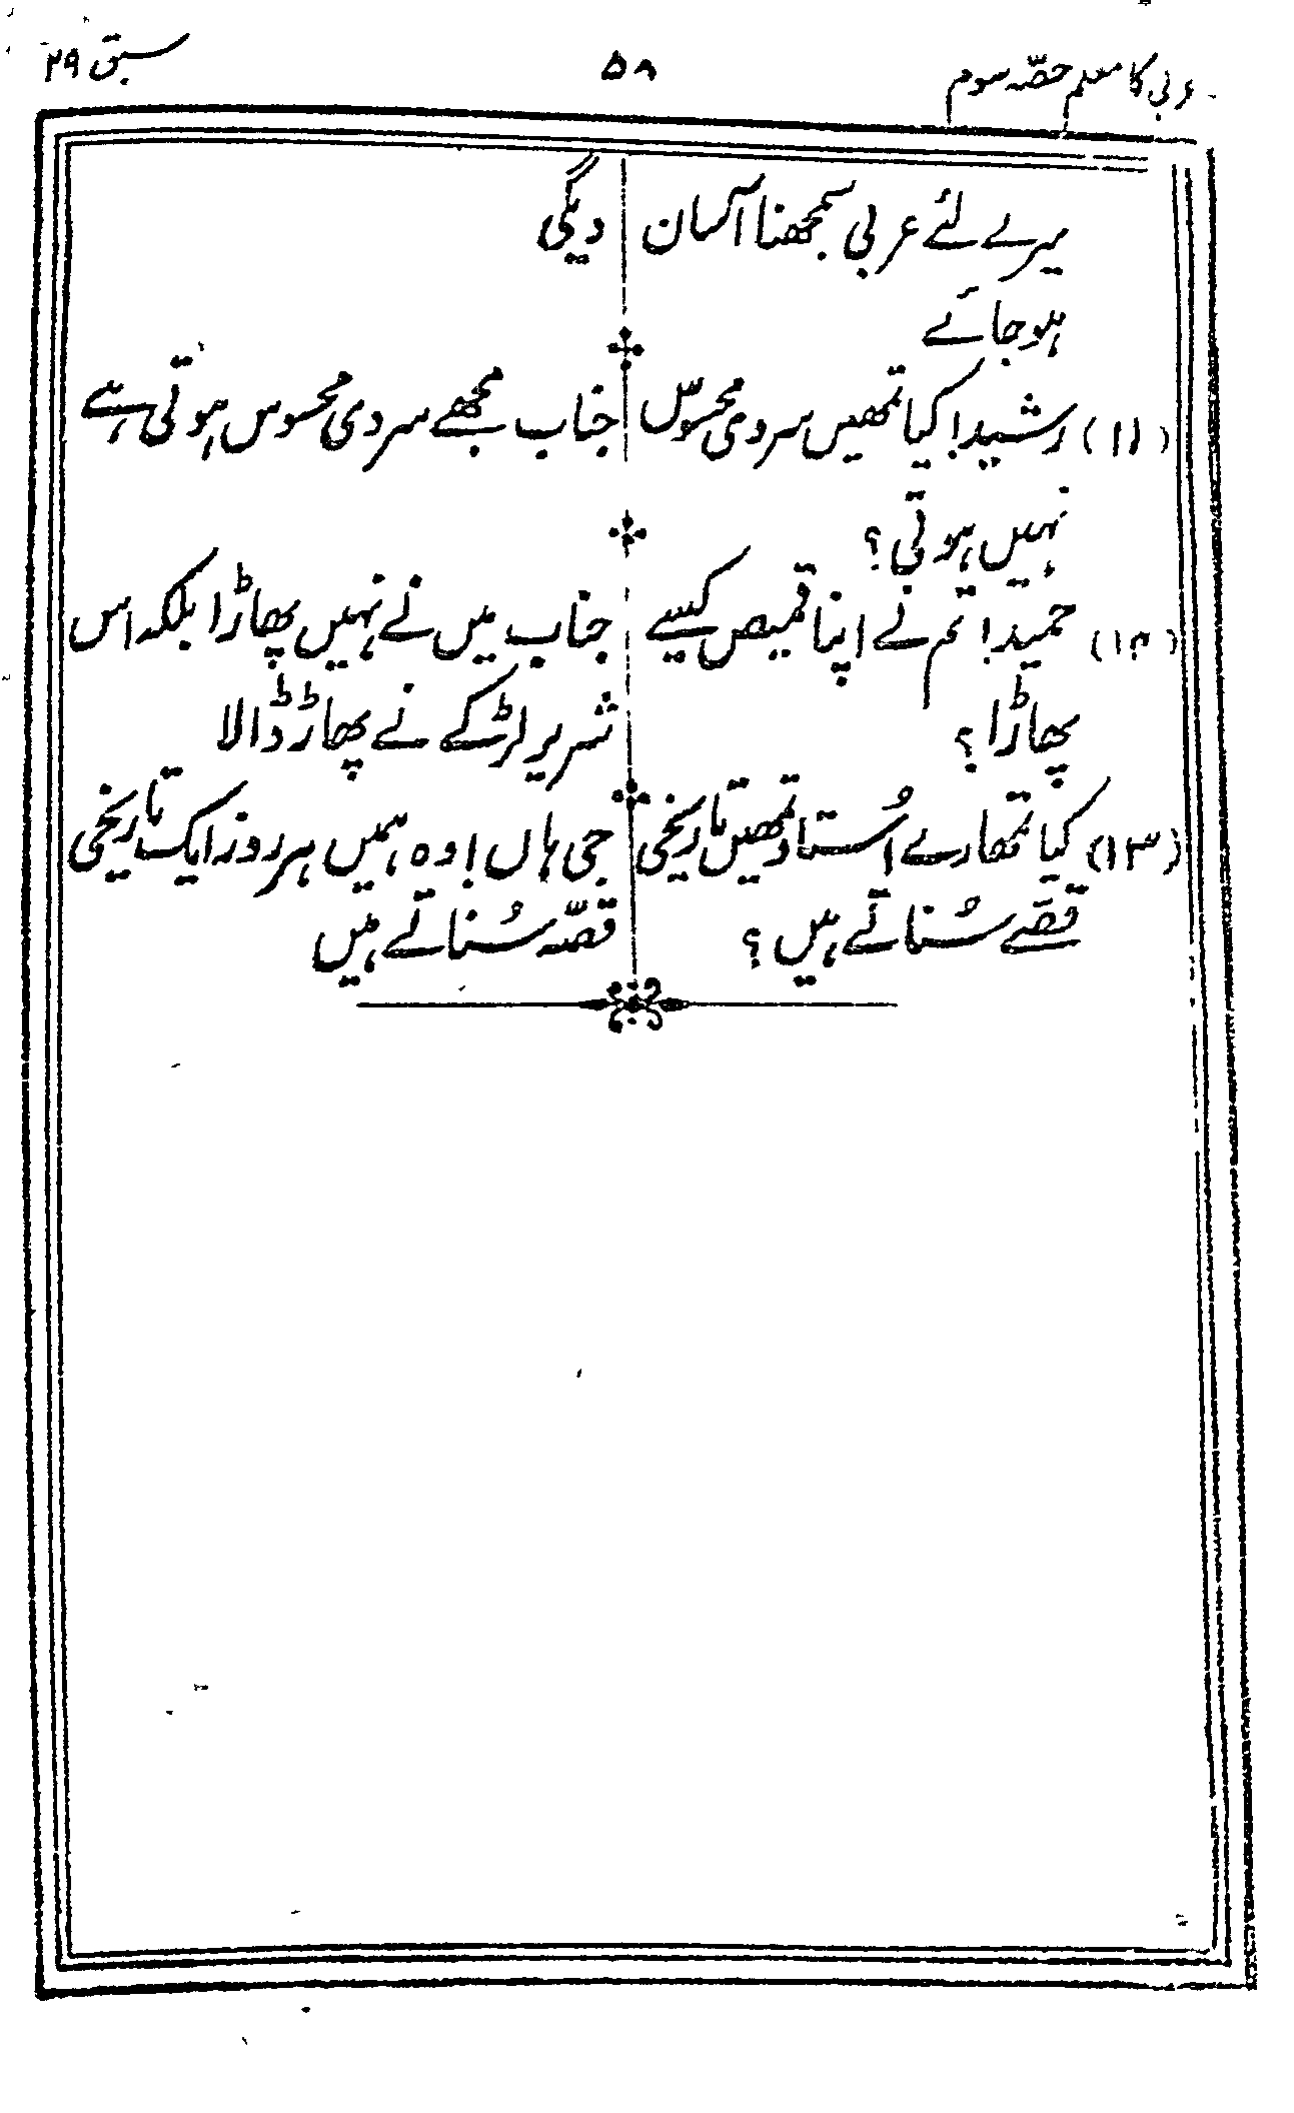 عربی کا معلم حصّہ سوم
۵۸
سبق ۲۹
میرے لئے عربی سمجھنا آسان
ہو جائے
دیگی
(۱۱) رشید! کیا تمھیں سردی محسوس
نہیں ہوتی؟
جناب مجھے سردی محسوس ہوتی ہے
(۱۲) حمید! تم نے اپنا قمیص کیسے
پھاڑا؟
جناب میں نے نہیں پھاڑا بلکہ اس
شریر لڑکے نے پھاڑ ڈالا
(۱۳) کیا تمھارے اُستاد تمھیں تاریخی
قصّے سُناتے ہیں؟
جی ہاں! وہ ہمیں ہر روز ایک تاریخی
قصّہ سُناتے ہیں